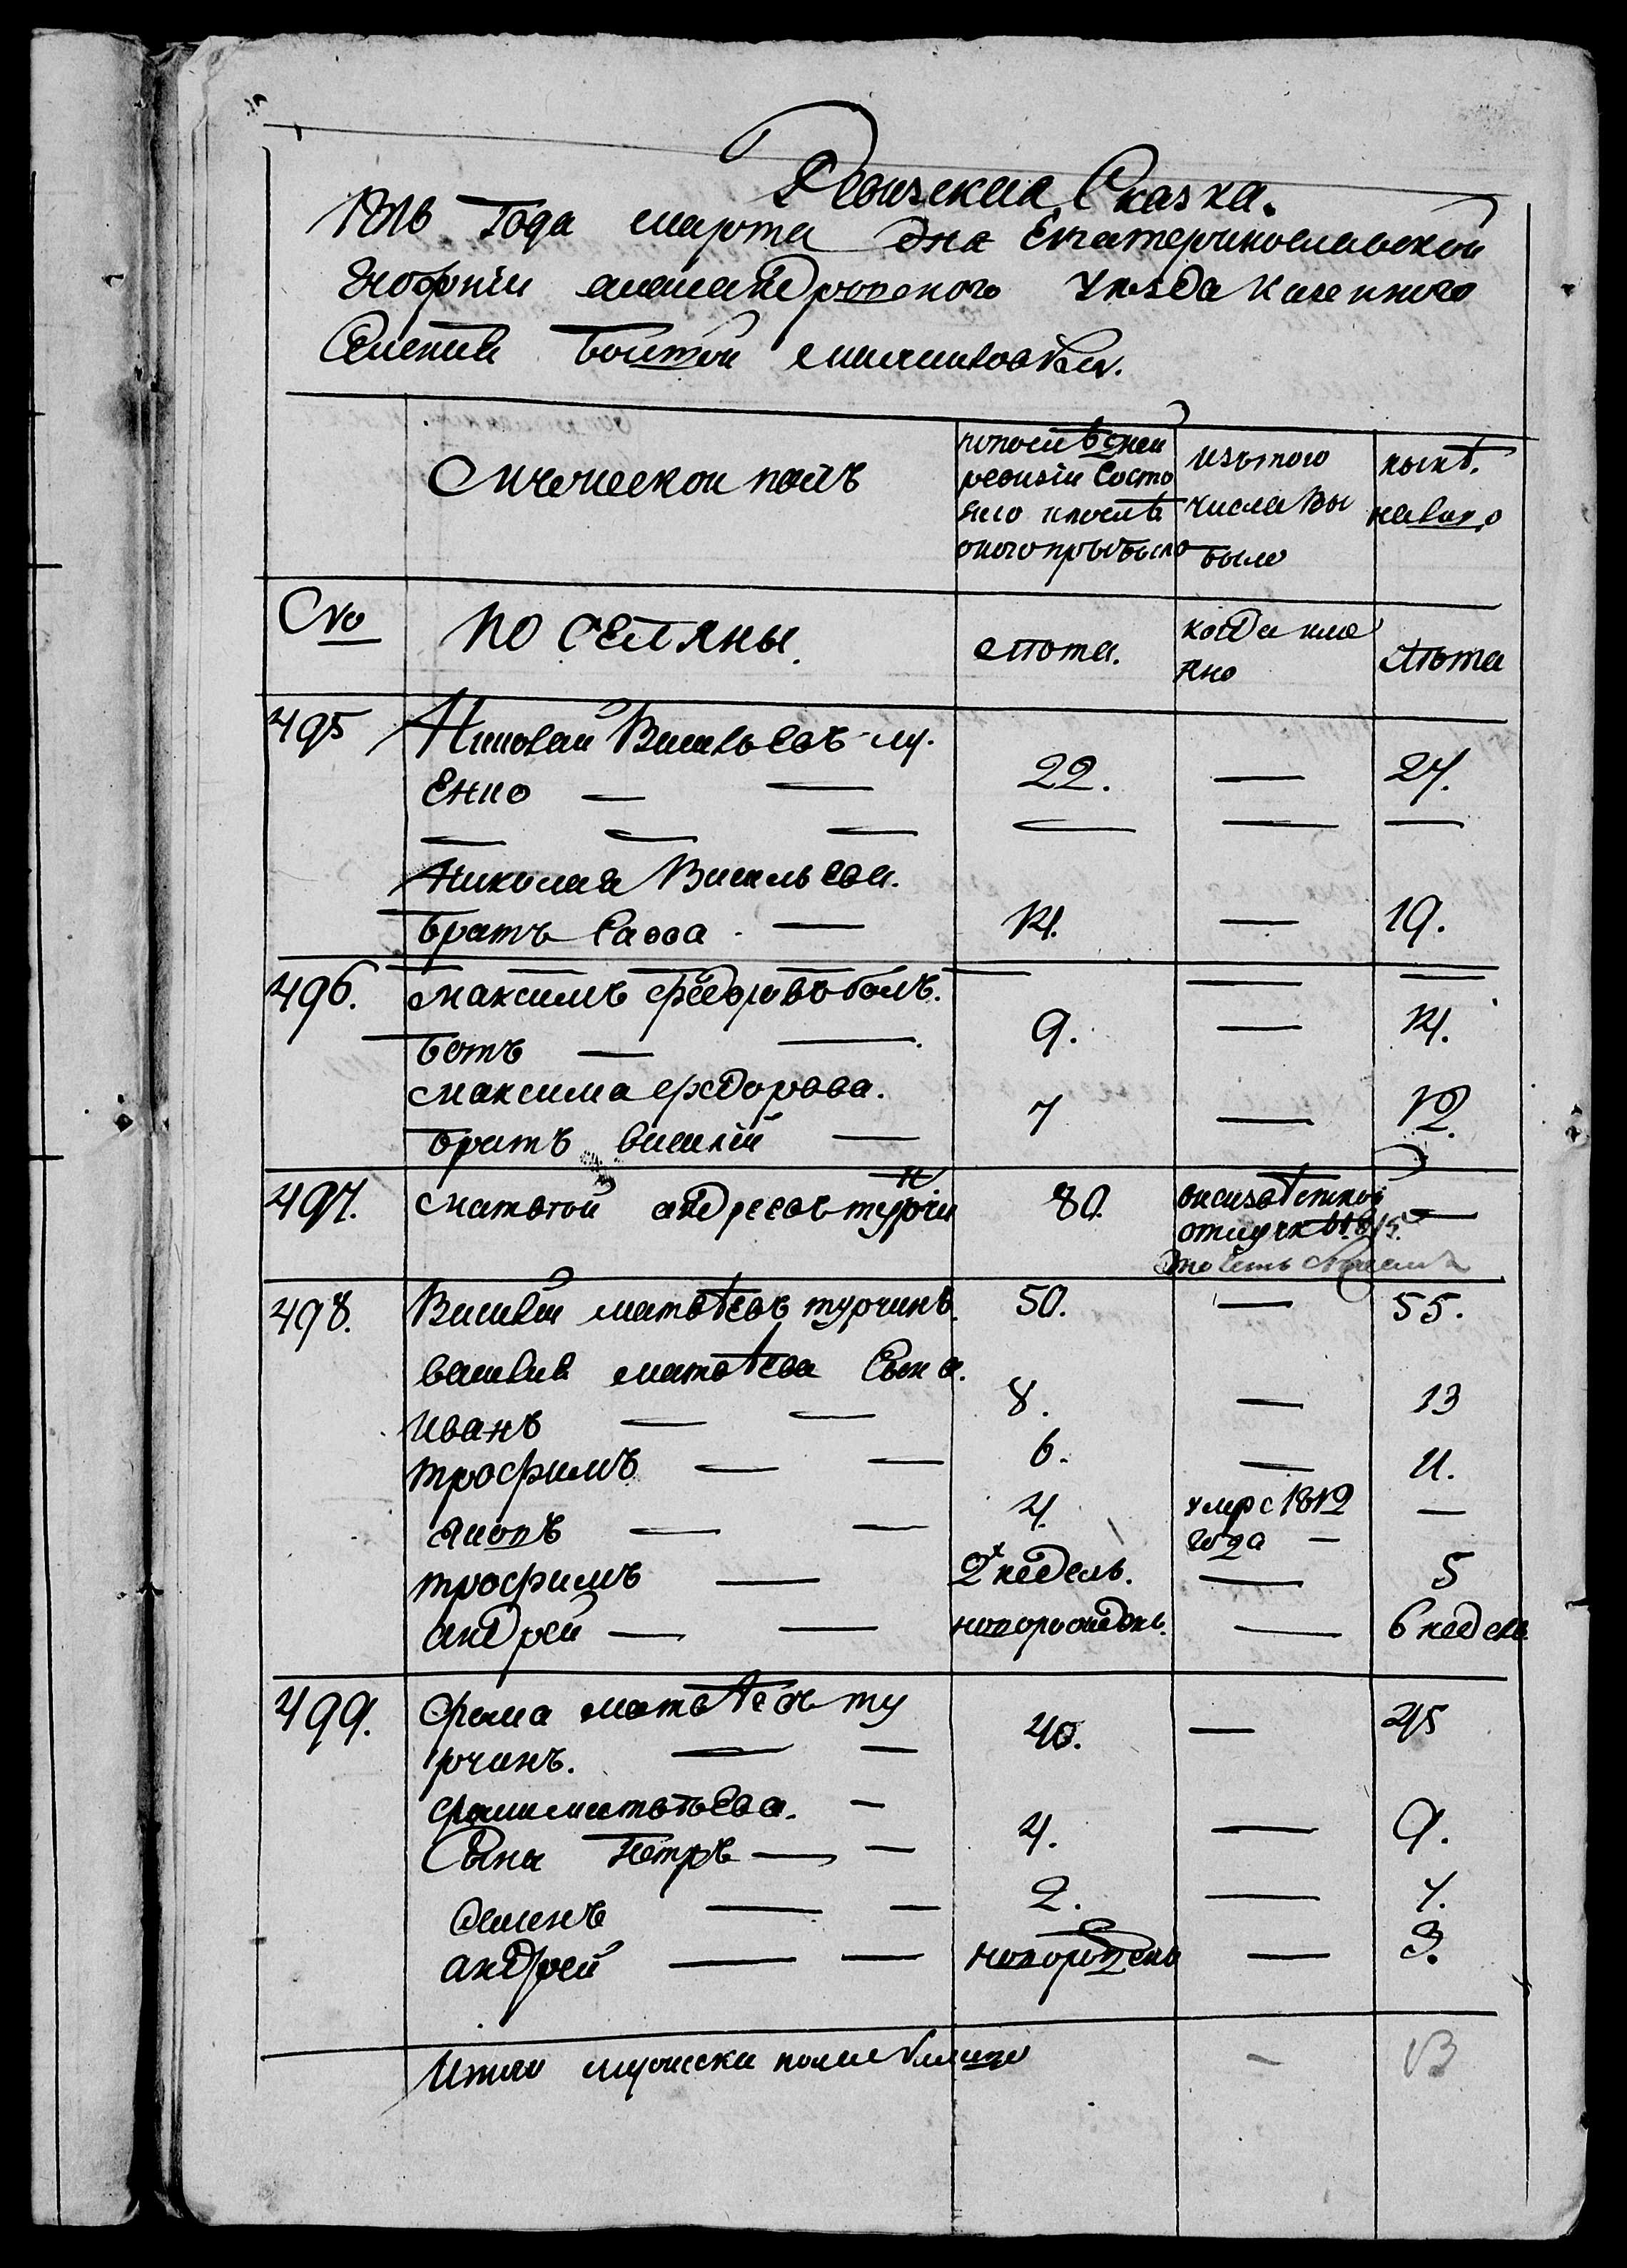 Ревизская Сказка.
1816 года марта дня Екатеринославской
Губернии александровского уезда казенного
Селения Большой михайловки.
Мужеской полъ
попослѣдней
ревизіи Состо
яло ипослѣ
оного прибыло
изътого
числа Вы
было
нынѣ.
налицо
No
ПОСЕЛЯНЫ.
лѣта.
когда име
нно
лѣта
495 Николай Васильевъ лу.
Енко — — 22. — 27.
— — — — — —
Николая Васильева.
братъ Савва — 14. — 19.
496. максимъ федоровъ болъ.
ботъ — — 9. — 14.
максима федорова.
братъ василій — 7 — 12.
497. матвѣй андреевъ турчи
н 80. внеизвѣстной
отлучкѣ 1815. —
498. Василій матвѣевъ турчинъ. 50. — 55.
василия матвѣева Сына.
Иванъ — — 8. — 13
трофимъ — — 6. — 11.
яковъ — — 4. умре 1812
года — —
трофимъ — 2х недель. — 5
андрей — — новорожденъ. — 6 недель
499. фома матвѣевъ ту
рчинъ. — — 40. — 45
фомиматвѣева. —
Сыны петръ — — 4. — 9.
Семенъ — — 2. — 7.
андрей — — новорожденъ — 3.
Итого мужеска пола налицо — 13